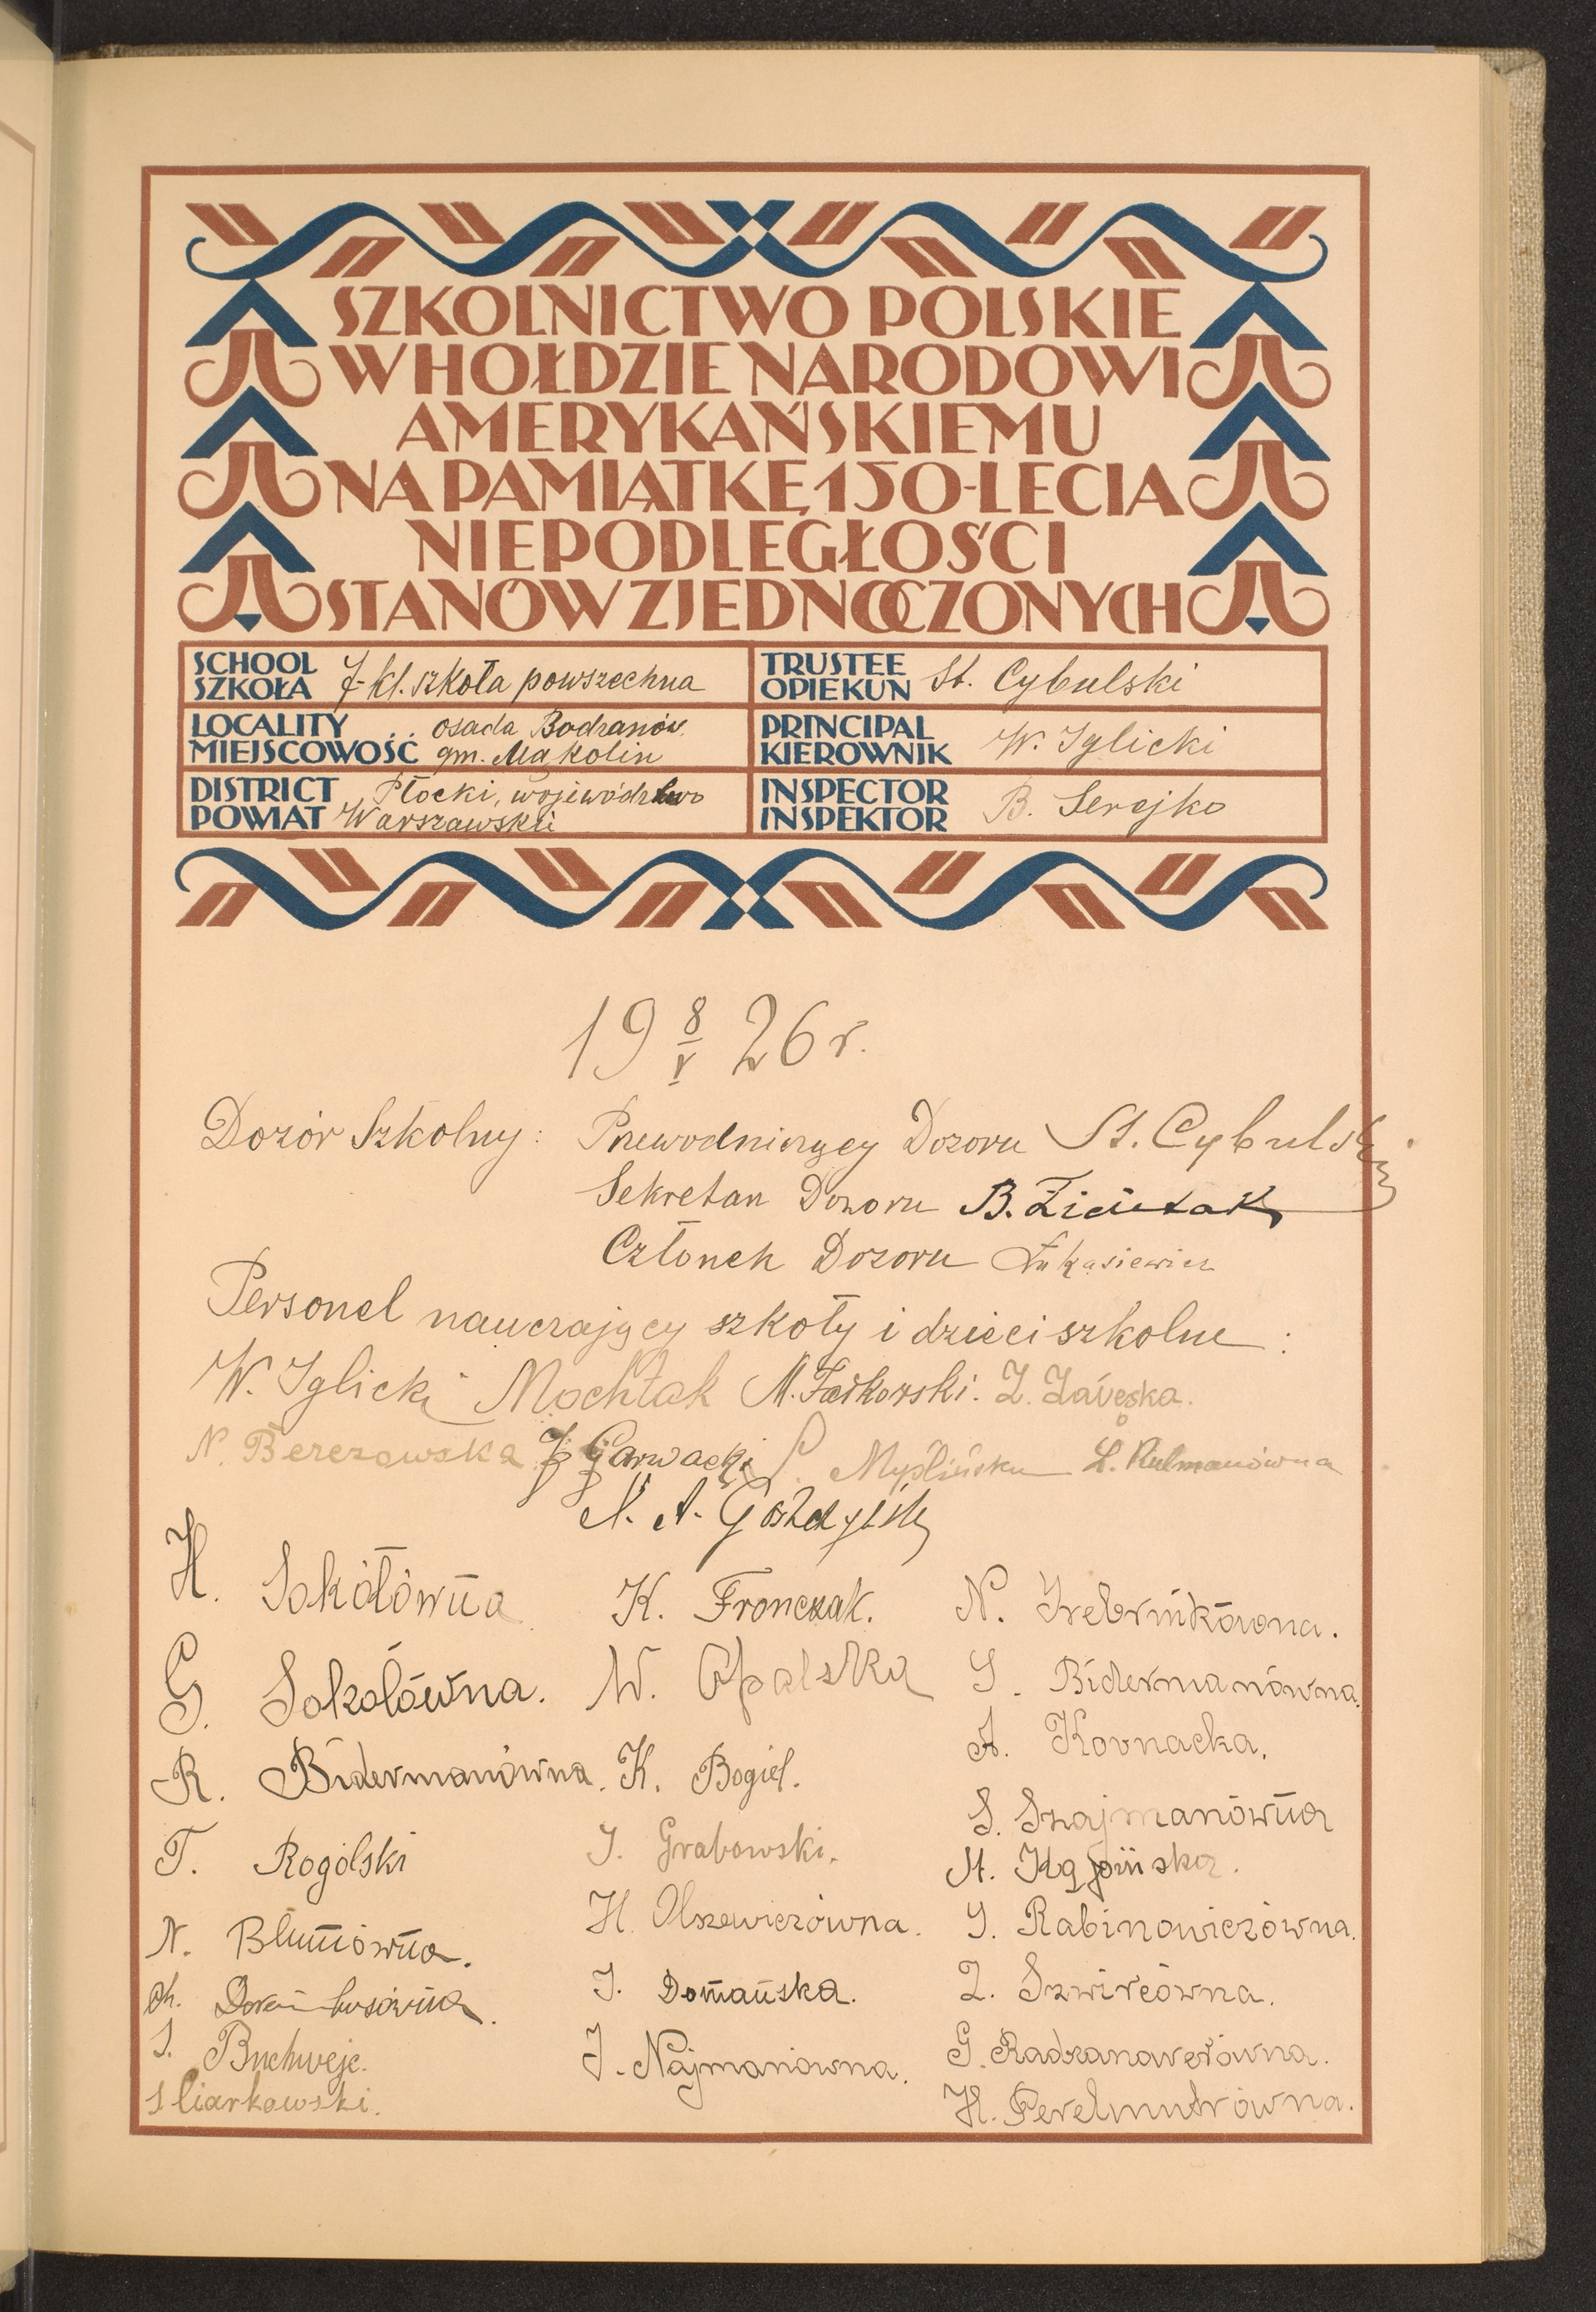 SZKOLNICTWO POLSKIE
W HOŁDZIE NARODOWI
AMERYKAŃSKIEMU
NA PAMIĄTKĘ 150-LECIA
NIEPODLEGŁOŚCI
STANÓW ZJEDNOCZONYCH
SCHOOL
SZKOŁA 7-kl. szkoła powszechna
TRUSTEE
OPIEKUN St. Cybulski
LOCALITY
MIEJSCOWOŚĆ osada Bodzanów
gm. Mąkolin
PRINCIPAL
KIEROWNIK W. Iglicki
DISTRICT
POWIAT Płocki, województwo
Warszawskie
INSPECTOR
INSPEKTOR B. Serejko
19 8/V 26 r.
Dozór Szkolny: Przewodniczący Dozoru St. Cybulski
Sekretarz Dozoru B.
Członek Dozoru Łukasiewicz
Personel nauczający szkoły i dzieci szkolne:
W. Iglicki Mochtak M. Fałkowski. Z.
N. Berezowska Garwacki Myślińska Ł. Kulmanówna
H. Sokołówna K. Fronczak. N. Srebrnikówna.
G. Sokołówna. W. Opalska S. Bidermanówna.
R. Bidermanówna. K. Bogiel. A. Kownacka.
T. Rogólski J. Grabowski. S. Szajmanówna
N. Blumówna. H. Olszewiczówna. M. Kępińska.
J. Domańska. S. Rabinowiczówna.
S. Z. Szwircówna.
J. Najmanówna. G.
S Ciarkowski. H. Perelmutrówna.